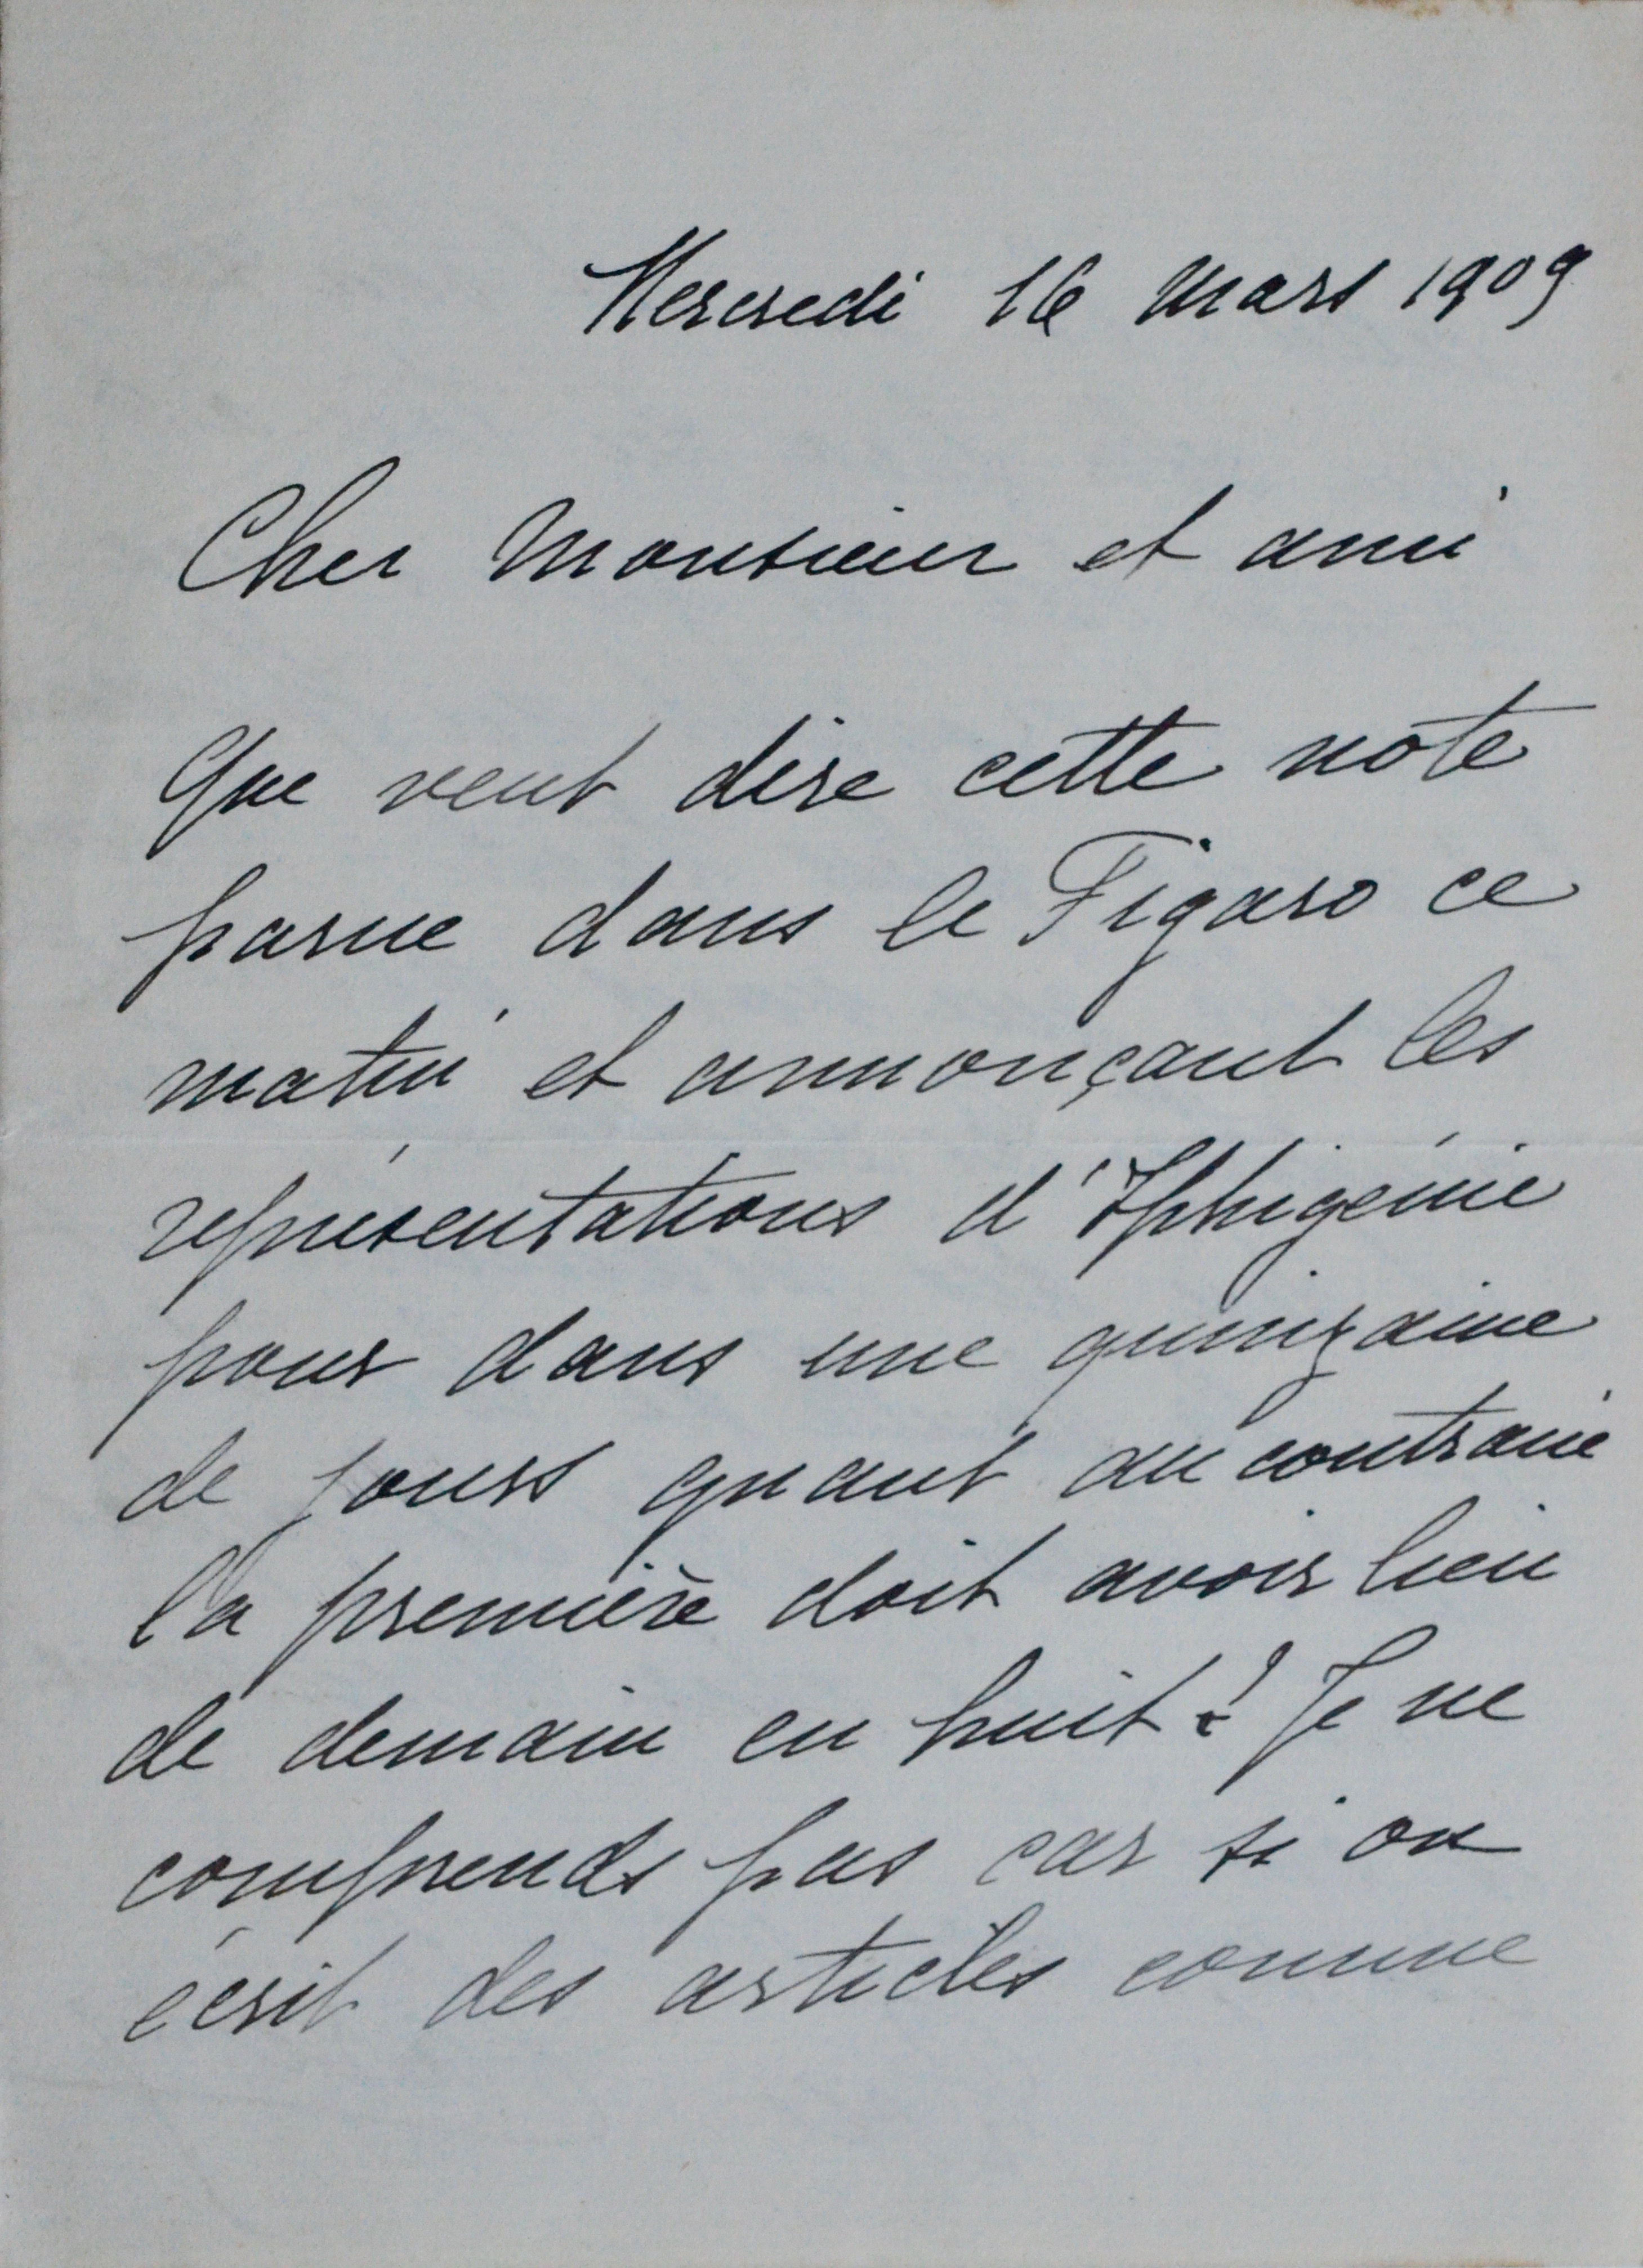 Mercredi 16 Mars 1909
Cher Monsieur et ami
Que veut dire cette note
parue dans le Figaro ce
matin et annonçant les
représentations d'Iphigénie
pour dans une quinzaine
de jours quant au contraire
la première doit avoir lieu
de demain en huit? Je ne
comprends pas car si on
écrit des articles comme